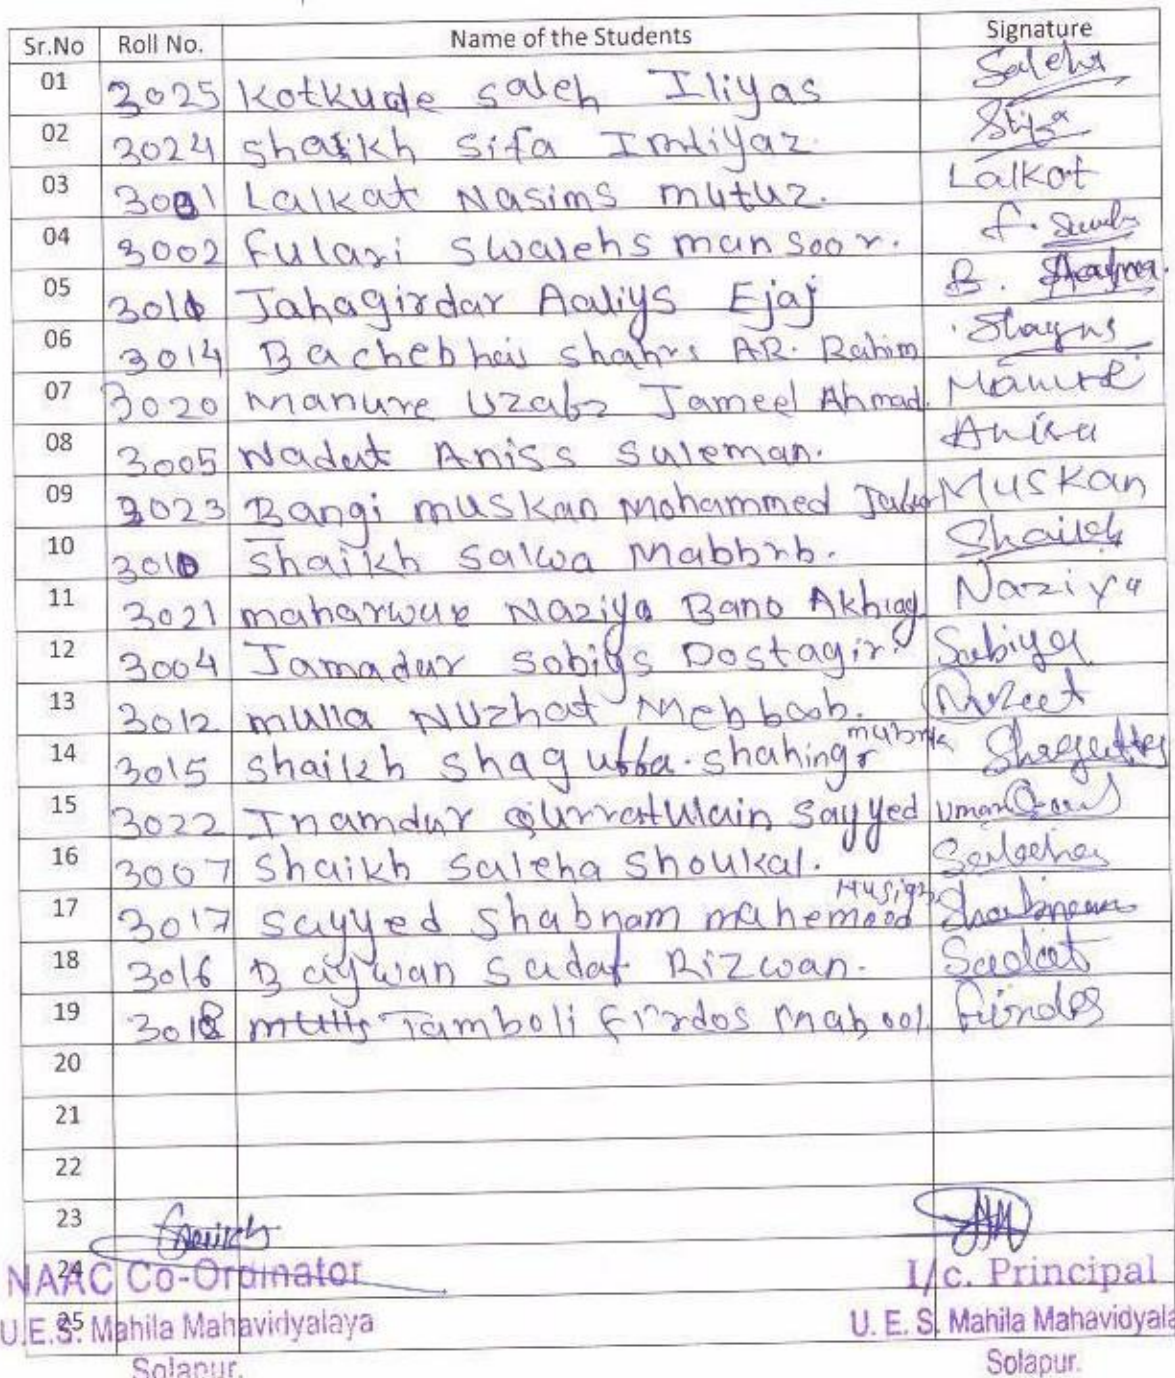 Sr.No Roll No. Name of the Students Signature
01 3025 Kotkude saleh Iliyas Saleha
02 3024 Shaikh Sifa Imtiyaz. Sifa
03 3001 Lalkat Nasims mutuz. Lalkot
04 3002 Fulari Swalehs mansoor. F.
05 3011 Jahagirdar Aaliys Ejaj B.
06 3014 Bachebhai shahrs AR. Rahim
07 3020 Manure Uzabz Jameel Ahmad. Manure
08 3005 Nadat Aniss Suleman. Anisa
09 3023 Bangi muskan Mohammed Muskan
10 3010 Shaikh Salwa Mabbhb. Shaikh
11 3021 maharwue Naziya Bano Akhlaq Naziya
12 3004 Jamadar sobiys Dostagir. Sabiya
13 3012 mulla Nuzhat Mehboob.
14 3015 Shaikh Shagufta. shahing Shagufta
15 3022 Inamdar Qurratulain Sayyed Uman
16 3007 Shaikh Saleha Shoukal. Saleha
17 3017 Sayyed Shabnam mahemood Shabnam
18 3016 Bagwan Sadaf Rizwan. Sadaf
19 3018 Tamboli Firdos Maboo1. Firdos
20
21
22
23
24
NAAC Co-Ordinator I/c. Principal
25
U.E.S. Mahila Mahavidyalaya U. E. S. Mahila Mahavidyala
Solapur. Solapur.